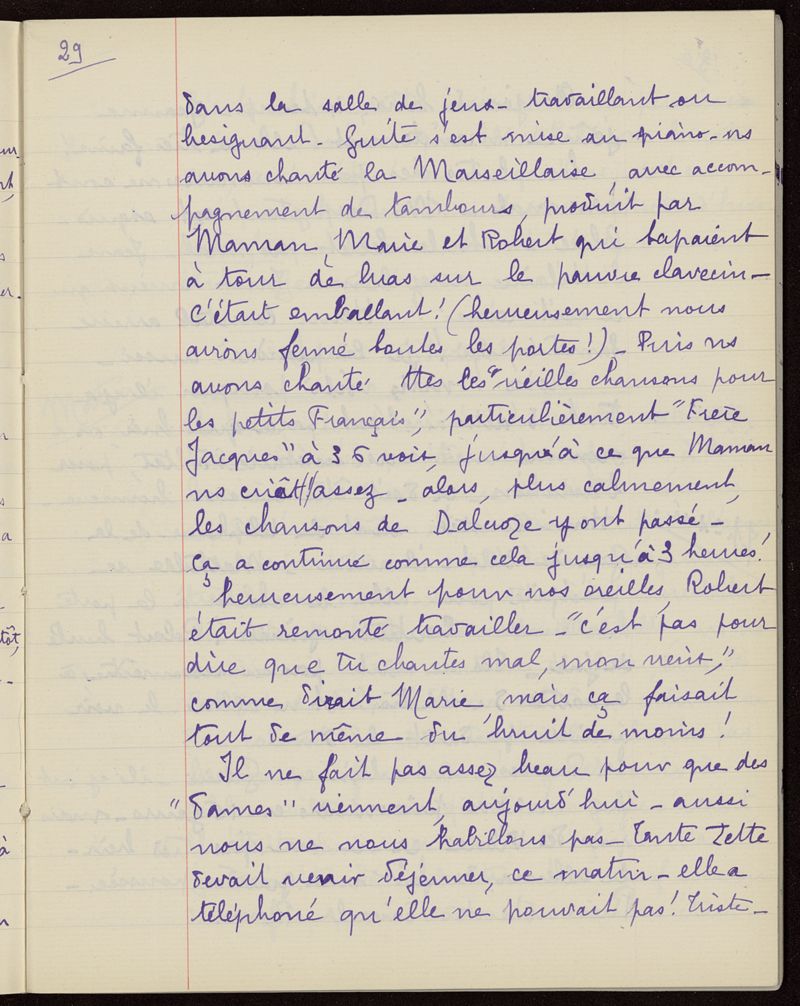 29
dans la salle de jeux - travaillant ou
besignant - Guite s'est mise au piano - ns
avons chanté la Marseillaise, avec accom-
pagnement de tambours, produit par
Maman, Marie et Robert qui tapaient
à tour de bras sur le pauvre clavecin -
C'était emballant! (heureusement nous
avions fermé toutes les portes!) - Puis ns
avons chanté ttes les "vieilles chansons pour
les petits Français", particulièrement "Frère
Jacques" à 36 voix, jusqu'à ce que Maman
ns criât assez - alors, plus calmement,
les chansons de Dalcroze y ont passé -
ça a continué comme cela jusqu'à 3 heures!
heureusement pour nos oreilles, Robert
était remonté travailler - "c'est pas pour
dire que tu chantes mal, mon vieux,"
comme dirait Marie, mais ça faisait
tout de même du bruit de moins!
Il ne fait pas assez beau pour que des
"dames" viennent, aujourd'hui - aussi
nous ne nous habillons pas - Tante Zette
devait venir déjeuner, ce matin - elle a
téléphoné qu'elle ne pouvait pas! Triste -